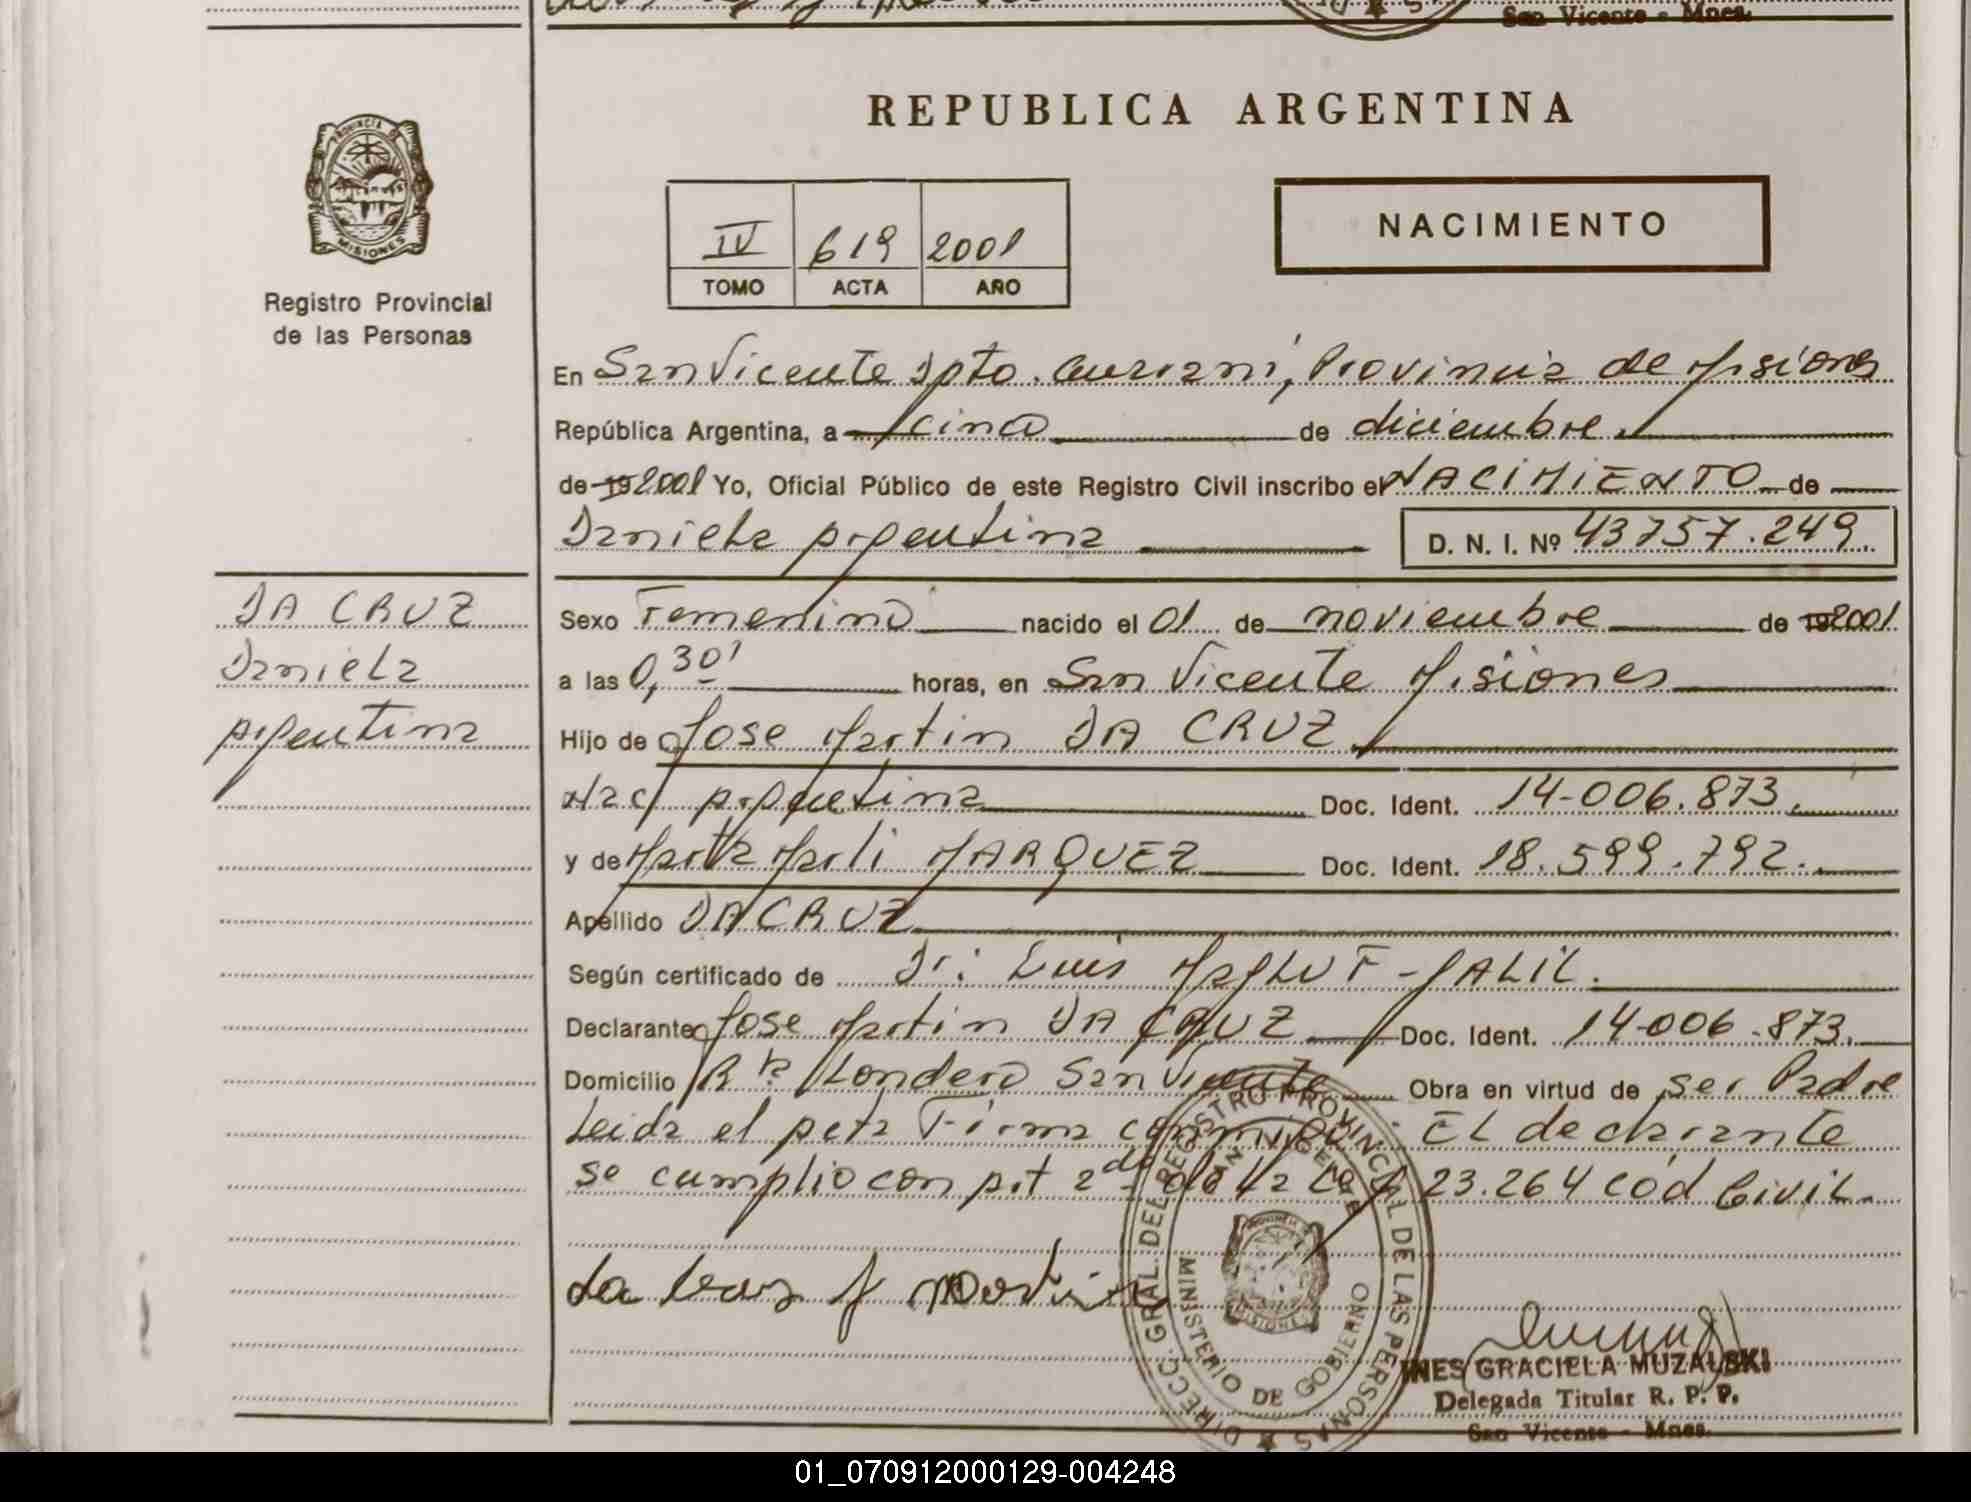 San Vicente - Mnes.
REPUBLICA ARGENTINA
PROVINCIA DE
MISIONES
Registro Provincial
de las Personas
IV 619 2001
TOMO ACTA AÑO
NACIMIENTO
En San Vicente Dpto. Guaraní, Provincia de Misiones
República Argentina, a cinco de diciembre
de 19 2001 Yo, Oficial Público de este Registro Civil inscribo el NACIMIENTO de
Daniela Argentina D. N. I. Nº 43757.249.
DA CRUZ
Daniela
Argentina
Sexo Femenino nacido el 01 de noviembre de 19 2001
a las 0,30' horas, en San Vicente Misiones
Hijo de Jose Martin DA CRUZ
Nac Argentina Doc. Ident. 14-006.873.
y de Marta Marli MARQUEZ Doc. Ident. 18.599.792.
Apellido DA CRUZ
Según certificado de Dr: Luis JALIL.
Declarante Jose Martin DA CRUZ Doc. Ident. 14-006.873.
Domicilio Londero San Vicente Obra en virtud de ser Padre
Leida el Acta Firma conmigo: El declarante
se cumplio con Art 2do de la Ley 23.264 cód Civil.
Da Cruz J Martin
DIRECC. GRAL. DEL REGISTRO PROVINCIAL DE LAS PERSONAS
SAN VICENTE
MINISTERIO DE GOBIERNO
INES GRACIELA MUZALSKI
Delegada Titular R. P. P.
San Vicente - Mnes.
01_070912000129-004248